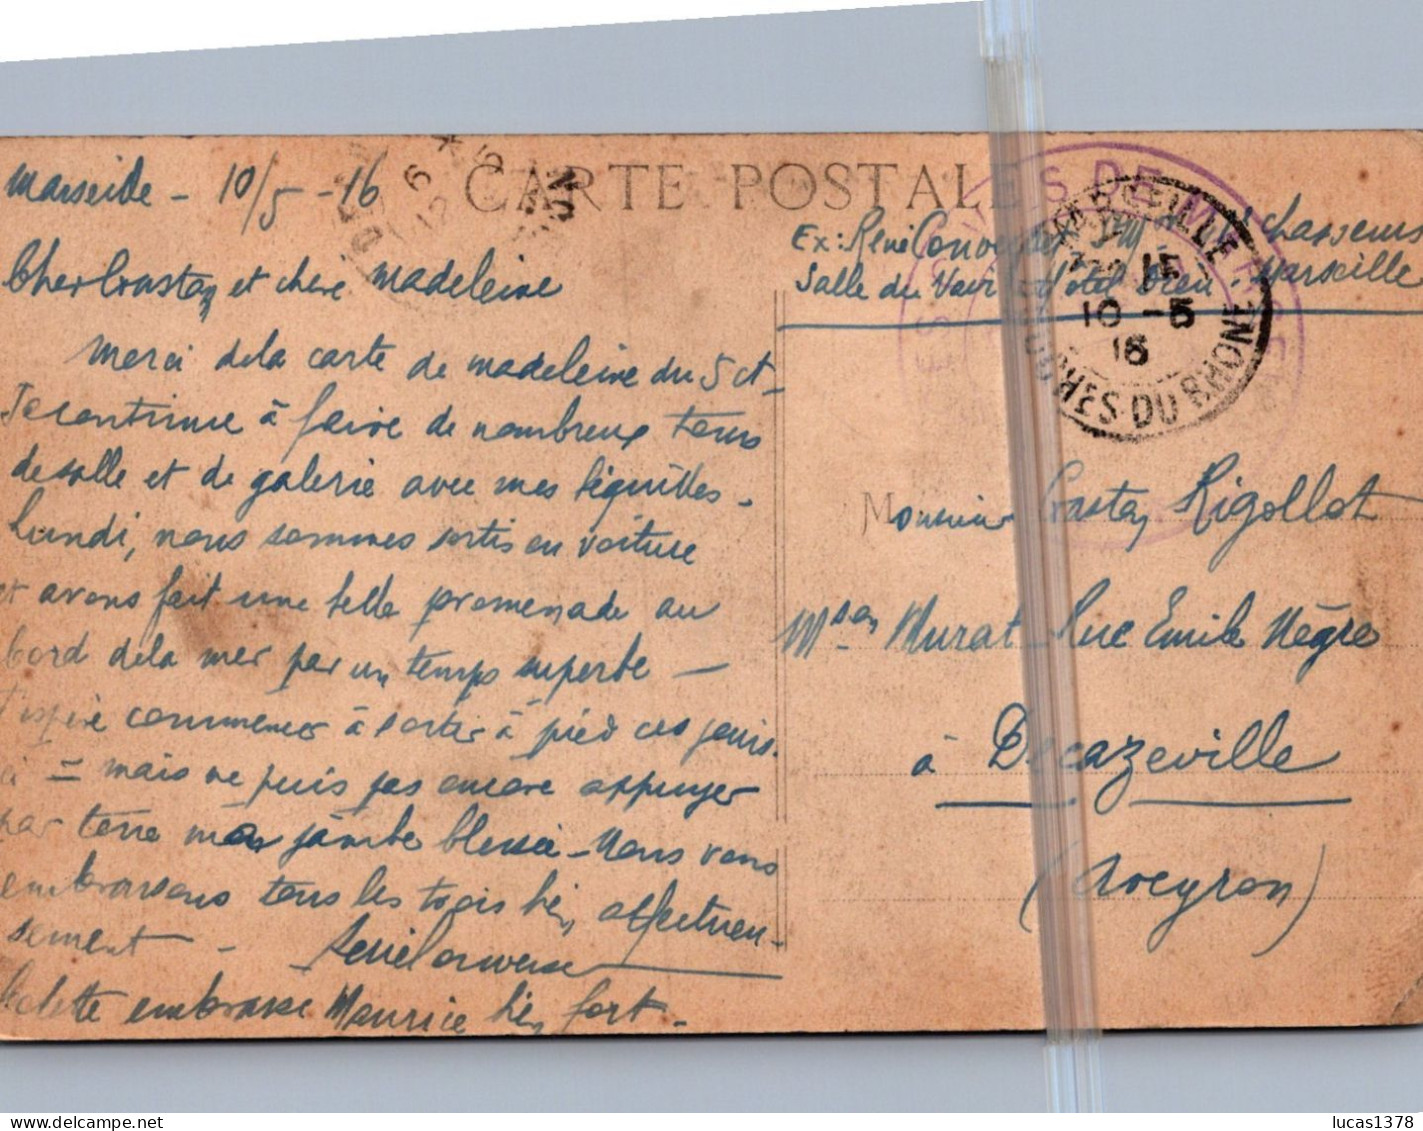 CARTE POSTALE
Marseille - 10/5 - 16
Cher Crustay et chere Madeleine
Merci dela carte de Madeleine du 5 ct -
Je continue à faire de nombreux tours
de salle et de galerie avec mes béquilles -
Lundi, nous sommes sortis en voiture
et avons fait une belle promenade au
bord dela mer par un temps superbe -
J'espère commencer à sortir à pied ces jours.
ci = mais ne puis pas encore appuyer
par terre ma jambe blessée - Nous vous
embrassons tous les trois bien affectueu-
sement -
embrasse Maurice bien fort -
Ex: René Chasseurs
Salle du Vair Hotel Dieu - Marseille
MARSEILLE
15
10 - 5
16
BOUCHES DU RHONE
Monsieur Rigollot
Mson Murat Rue Emile Nègre
à Decazeville
(Aveyron)
lucas1378